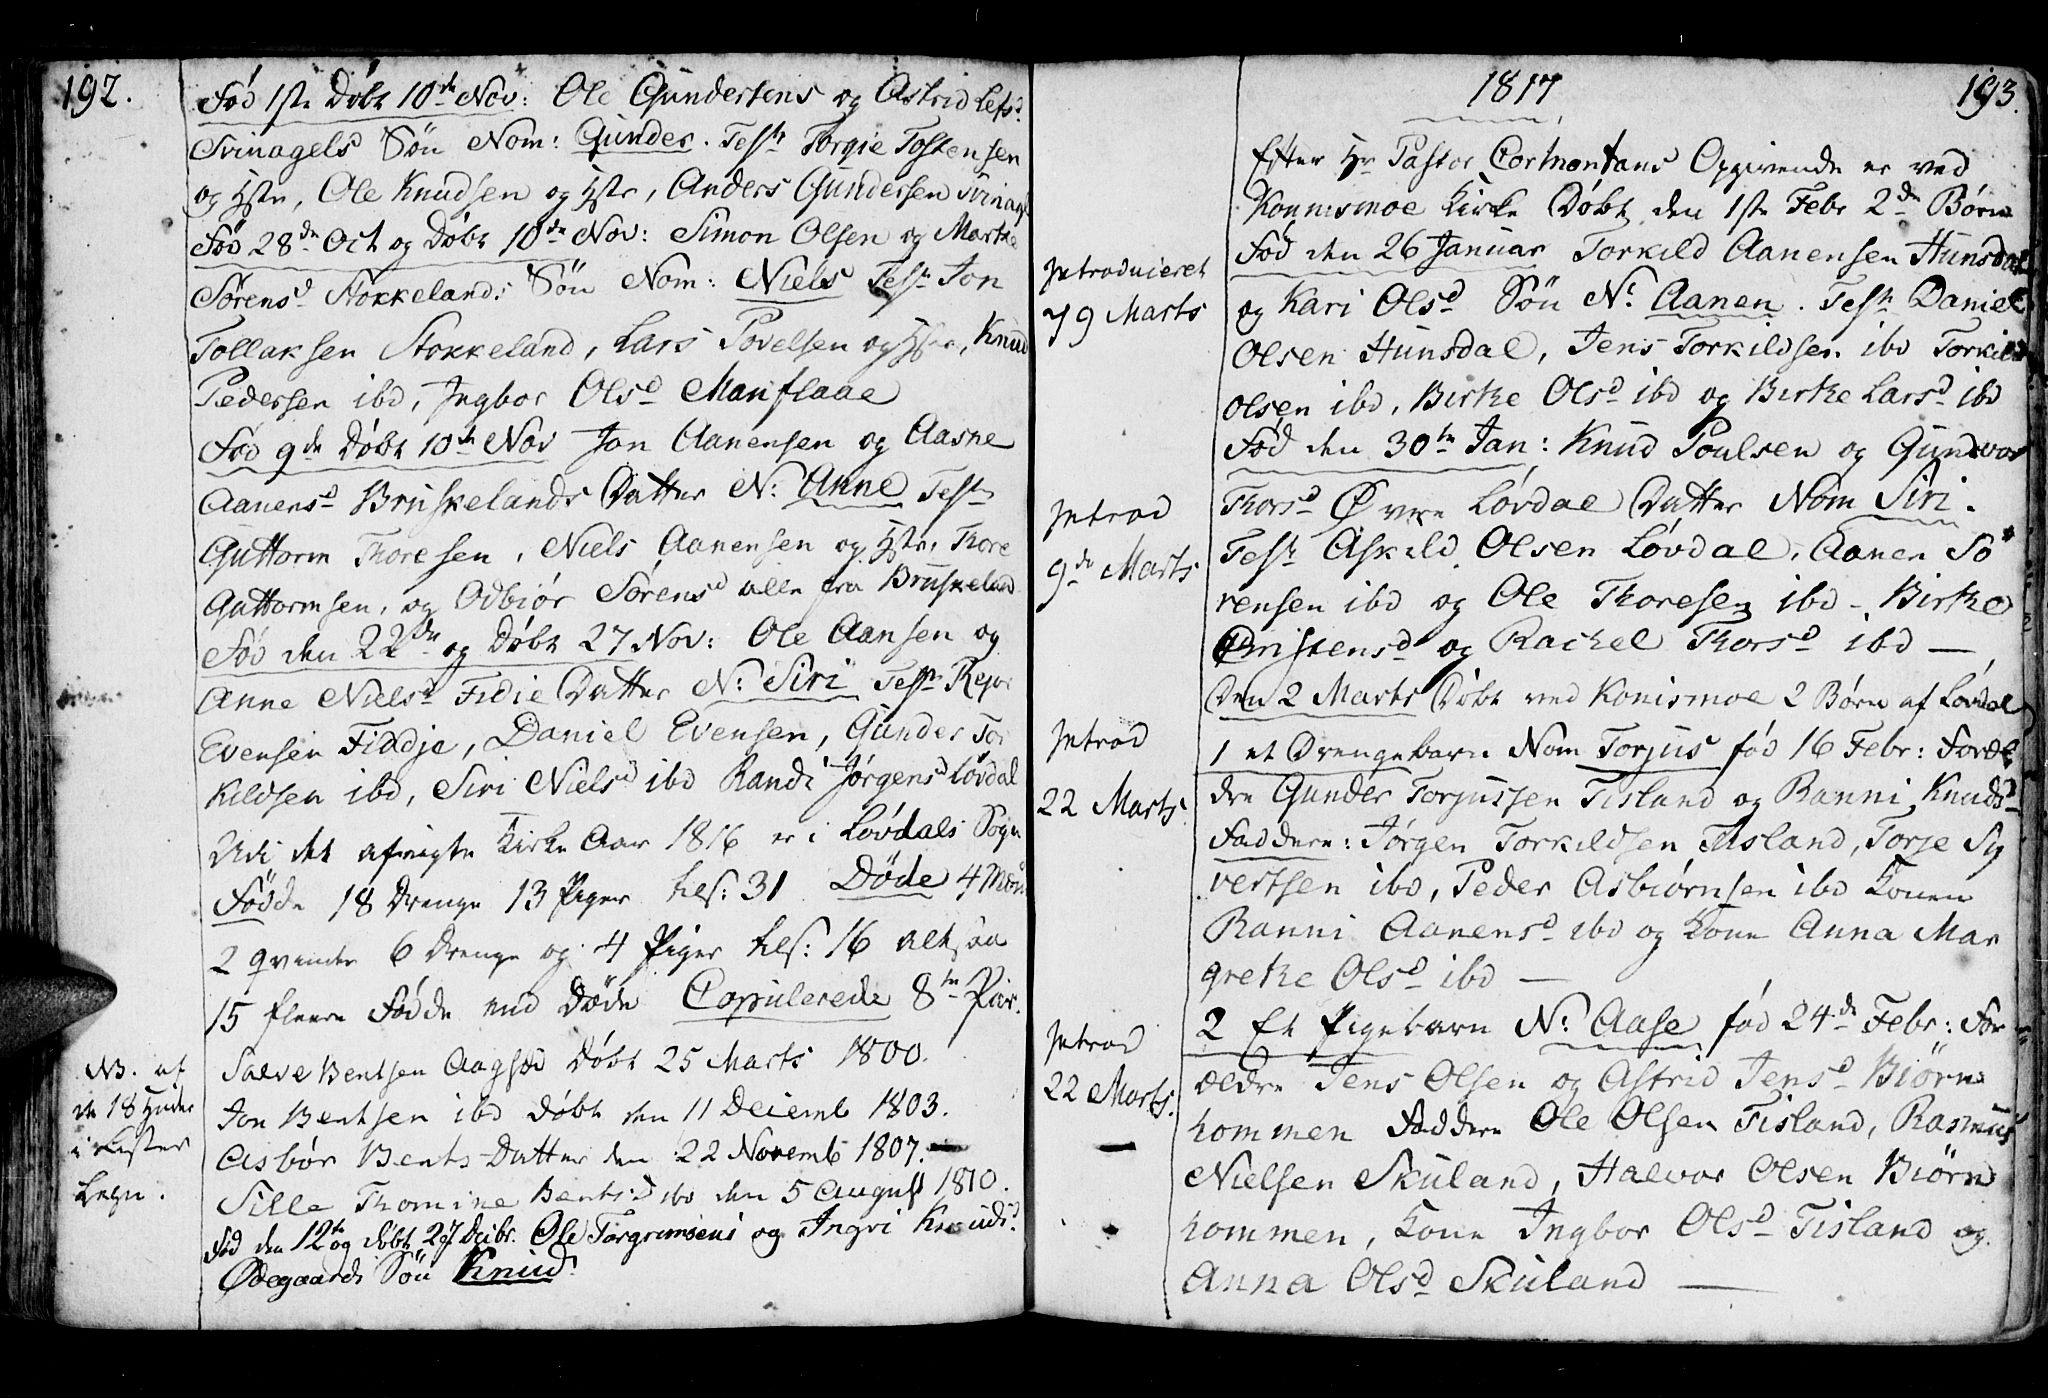 192.
Fød 1ste Døbt 10de Nov: Ole Gundersens og Astrid Lefsd
Svinagels Søn Nom: Gunder. Test Torgie Tostensen
og Hstr, Ole Knudsen og Hstr, Anders Gundersen Svinag
Fød 28de Oct og Døbt 10de Nov: Simon Olsen og Marthe
Sørensd Stokkelands Søn Nom: Niels Test Jon
Tollaksen Stokkeland, Lars Povelsen og Hstr, Knud
Pedersen ibd, Ingbor Olsd Manflaae
Fød 9de Døbt 10de Nov Jon Aanensen og Aasne
Aanensd Bruskelands Datter N: Anne Test
Guttorm Thoresen, Niels Aanensen og Hstr, Thore
Guttormsen, og Odbiør Sørensd alle fra Bruskeland
Fød den 22de og Døbt 27 Nov: Ole Aansen og
Anne Nielsd Fidie Datter N: Siri Test Rejer
Evensen Fiddje, Daniel Evensen, Gunder Tor
kildsen ibd, Siri Nielsd ibd Randi Jørgensd Løvdal
Udi det afvigte Kirke Aar 1816 er i Løvdals Sogn
Fødde 18 Drenge 13 Piger tils: 31 Døde 4 Mænd
2 Qvinder 6 Drenge og 4 Piger tils: 16 altsaa
15 fleere Fødde end Døde Copulerede 8te Par.
NB. af
de 18
i Lister
Legn.
Salve Bentsen Aagsæd Døbt 25 Marts 1800.
Jon Bentsen ibd døbt den 11 Decemb 1803.
Asbør Bents Datter den 22 Novemb 1807.
Sille Thomine Bentsd ibd den 5 August 1810.
Fød den 12te og døbt 27 Decbr. Ole Torgrimsens og Ingri Knudsd
Ødegaards Søn Knud.
1817
193.
Efter Hr Pastor Cortmontans Opgivende er ved
Konnismoe Kirke Døbt den 1ste Febr 2de Børn
Introduceret
9 Marts
Fød den 26 Januar Torkild Aanensen Hunsdal
og Kari Olsd Søn N: Aanen. Test Daniel
Olsen Hunsdal, Jens Torkildsen ibd Torkild
Olsen ibd, Birthe Olsd ibd og Birthe Larsd ibd
Introd
9de Marts
Fød den 30te Jan: Knud Poulsen og Gundvor
Thorsd Øvre Løvdal Datter Nom Siri.
Test Askild Olsen Løvdal, Aanen Sø
rensen ibd og Ole Thoresen ibd - Birthe
Christensd og Rachel Thorsd ibd —
Den 2 Marts Døbt ved Konismoe 2 Børn af Løvdal
Introd
22 Marts
1 et Drengebarn Nom Torjus fød 16 Febr: Foræl
dre Gunder Torjussen Tisland og Ranni Knudsd
Faddere: Jørgen Torkildsen Tisland, Torje Sy
vertsen ibd, Peder Asbiørnsen ibd Konen
Ranni Aanensd ibd og Kone Anna Mar
grethe Olsd ibd —
Introd
22 Marts.
2 Et Pigebarn N: Aase fød 24de Febr: For
ældre Jens Olsen og Astrid Jensd Biørn
kommen Faddere Ole Olsen Tisland, Rasmus
Nielsen Skuland, Halvor Olsen Biørn
kommen, Kone Ingbor Olsd Tisland og
Anna Olsd Skuland —